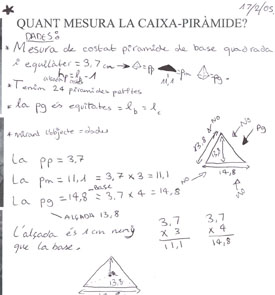 17/2/05
QUANT MESURA LA CAIXA-PIRÀMIDE?
DADES:
* Mesura de costat piramide de base quadrada
i equilàter = 3,7 cm → = pp = pm = pg
11,1
* Tenim 24 piramides petites
* la pg és equilates = lb = lc
* mirant l'objecte = dades
La pp = 3,7
La pm = 11,1 = 3,7 x 3 = 11,1
Base
La pg = 14,8 = 3,7 x 4 = 14,8
ALÇADA 13,8
L'alçada és 1 cm menys
que la base.
NO
NO
Pg
13,8
13,8
14,8
NO
3,7
x 3
11,1
3,7
x 4
14,8
13,8